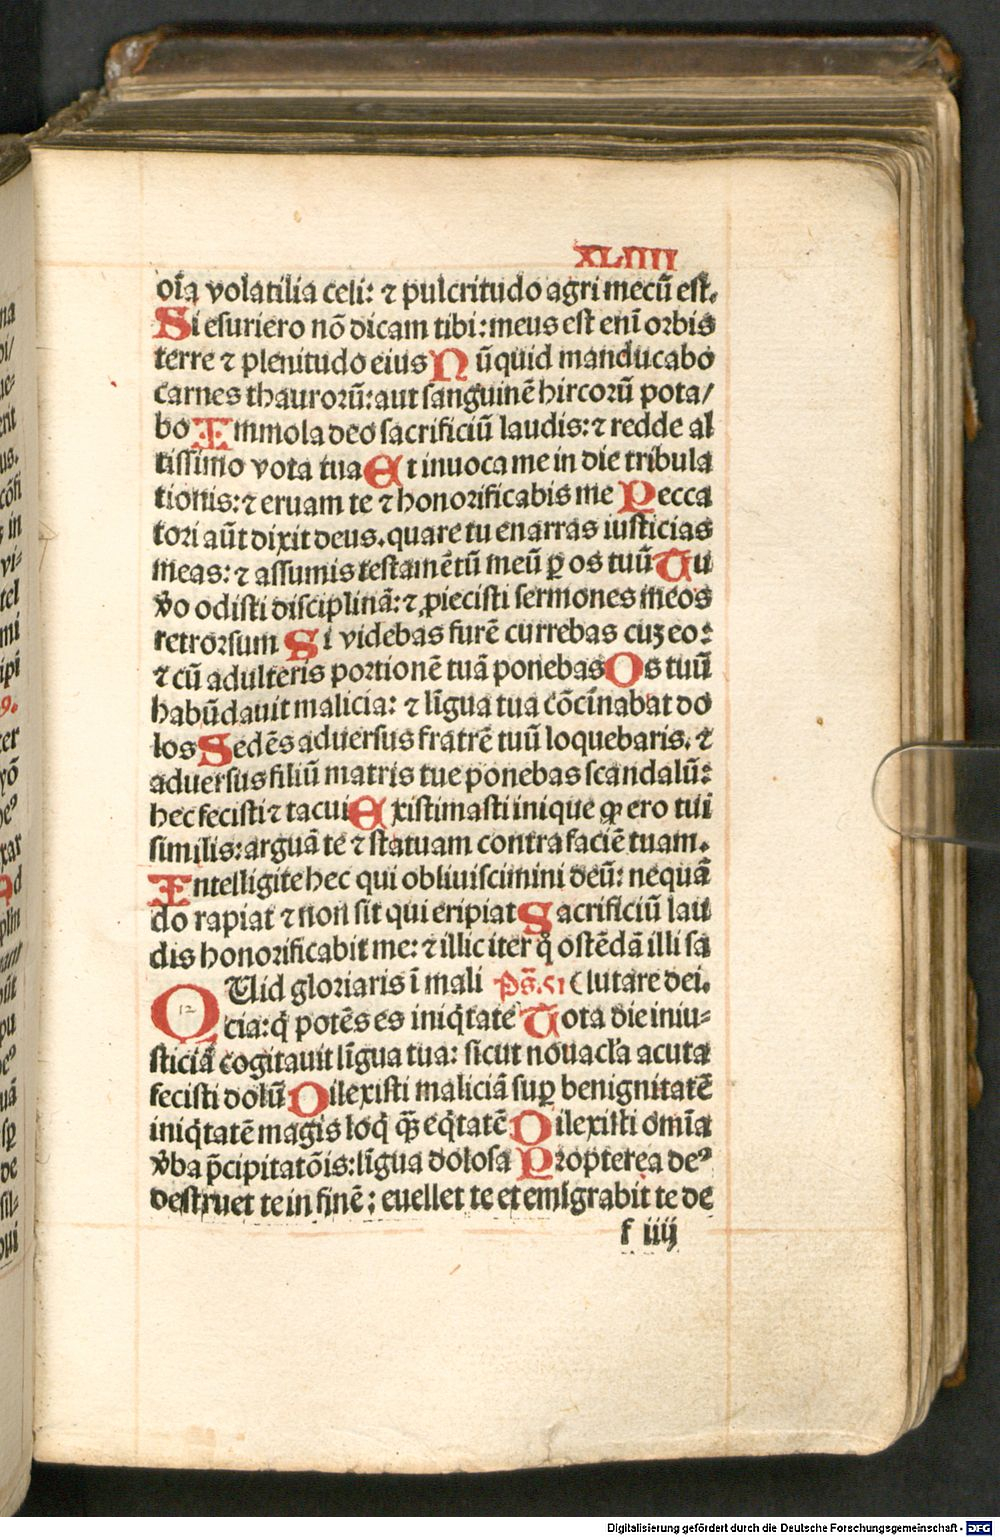 XLIIII
oı̄a volatilia celi: ⁊ pulcritudo agri mecū est.
Si esuriero nō dicam tibi: meus est enī orbis
terre ⁊ plenitudo eius Nūquid manducabo
carnes thaurorū: aut sanguinē hircorū pota/
bo Immola deo sacrificiū laudis: ⁊ redde al
tissimo vota tua Et inuoca me in die tribula
tionis: ⁊ eruam te ⁊ honorificabis me Pecca
tori aūt dixit deus. quare tu enarras iusticias
meas: ⁊ assumis testamētū meū ꝑ os tuū Tu
v̄o odisti disciplinā: ⁊ ꝓiecisti sermones meos
retrorsum Si videbas furē currebas cuꝫ eo:
⁊ cū adulteris portionē tuā ponebas Os tuū
habūdauit malicia: ⁊ līgua tua cōcīnabat do
los Sedēs aduersus fratrē tuū loquebaris. ⁊
aduersus filiū matris tue ponebas scandalū:
hec fecisti ⁊ tacui Existimasti inique ꝙ ero tui
similis: arguā te ⁊ statuam contra faciē tuam.
Intelligite hec qui obliuiscimini deū: nequā
do rapiat ⁊ non sit qui eripiat Sacrificiū lau
dis honorificabit me: ⁊ illic iter q̊ ostēdā illi sa
QUid gloriaris ī mali Ps̄. 51 ( lutare dei.
12
cia: q̄ potēs es iniq̄tate Tota die iniu-
sticiā cogitauit līgua tua: sicut nouacl̄a acuta
fecisti dolū Dilexisti maliciā suꝑ benignitatē
iniq̄tatē magis loq̄ ꝙ̄ eq̄tatē Dilexisti omīa
v̄ba p̄cipitatōis: līgua dolosa Propterea deꝰ
destruet te in finē: euellet te et emigrabit te de
f iiij
Digitalisierung gefördert durch die Deutsche Forschungsgemeinschaft - DFG